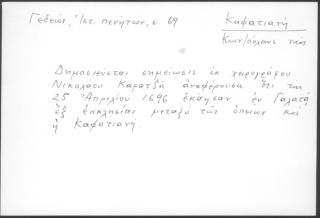 Γεδεών, Ἱστ. πενήτων, σ. 69
Καφατιανή
Κων/πόλεως ναός
Δημοσιεύεται σημείωσις ἐκ χειρογράφου
Νικολάου Καρατζᾶ ἀναφέρουσα ὅτι τὴν
25 Ἀπριλίου 1696 ἐκάησαν ἐν Γαλατᾷ
ἓξ ἐκκλησίαι μεταξὺ τῶν ὁποίων καὶ
ἡ Καφατιανή.